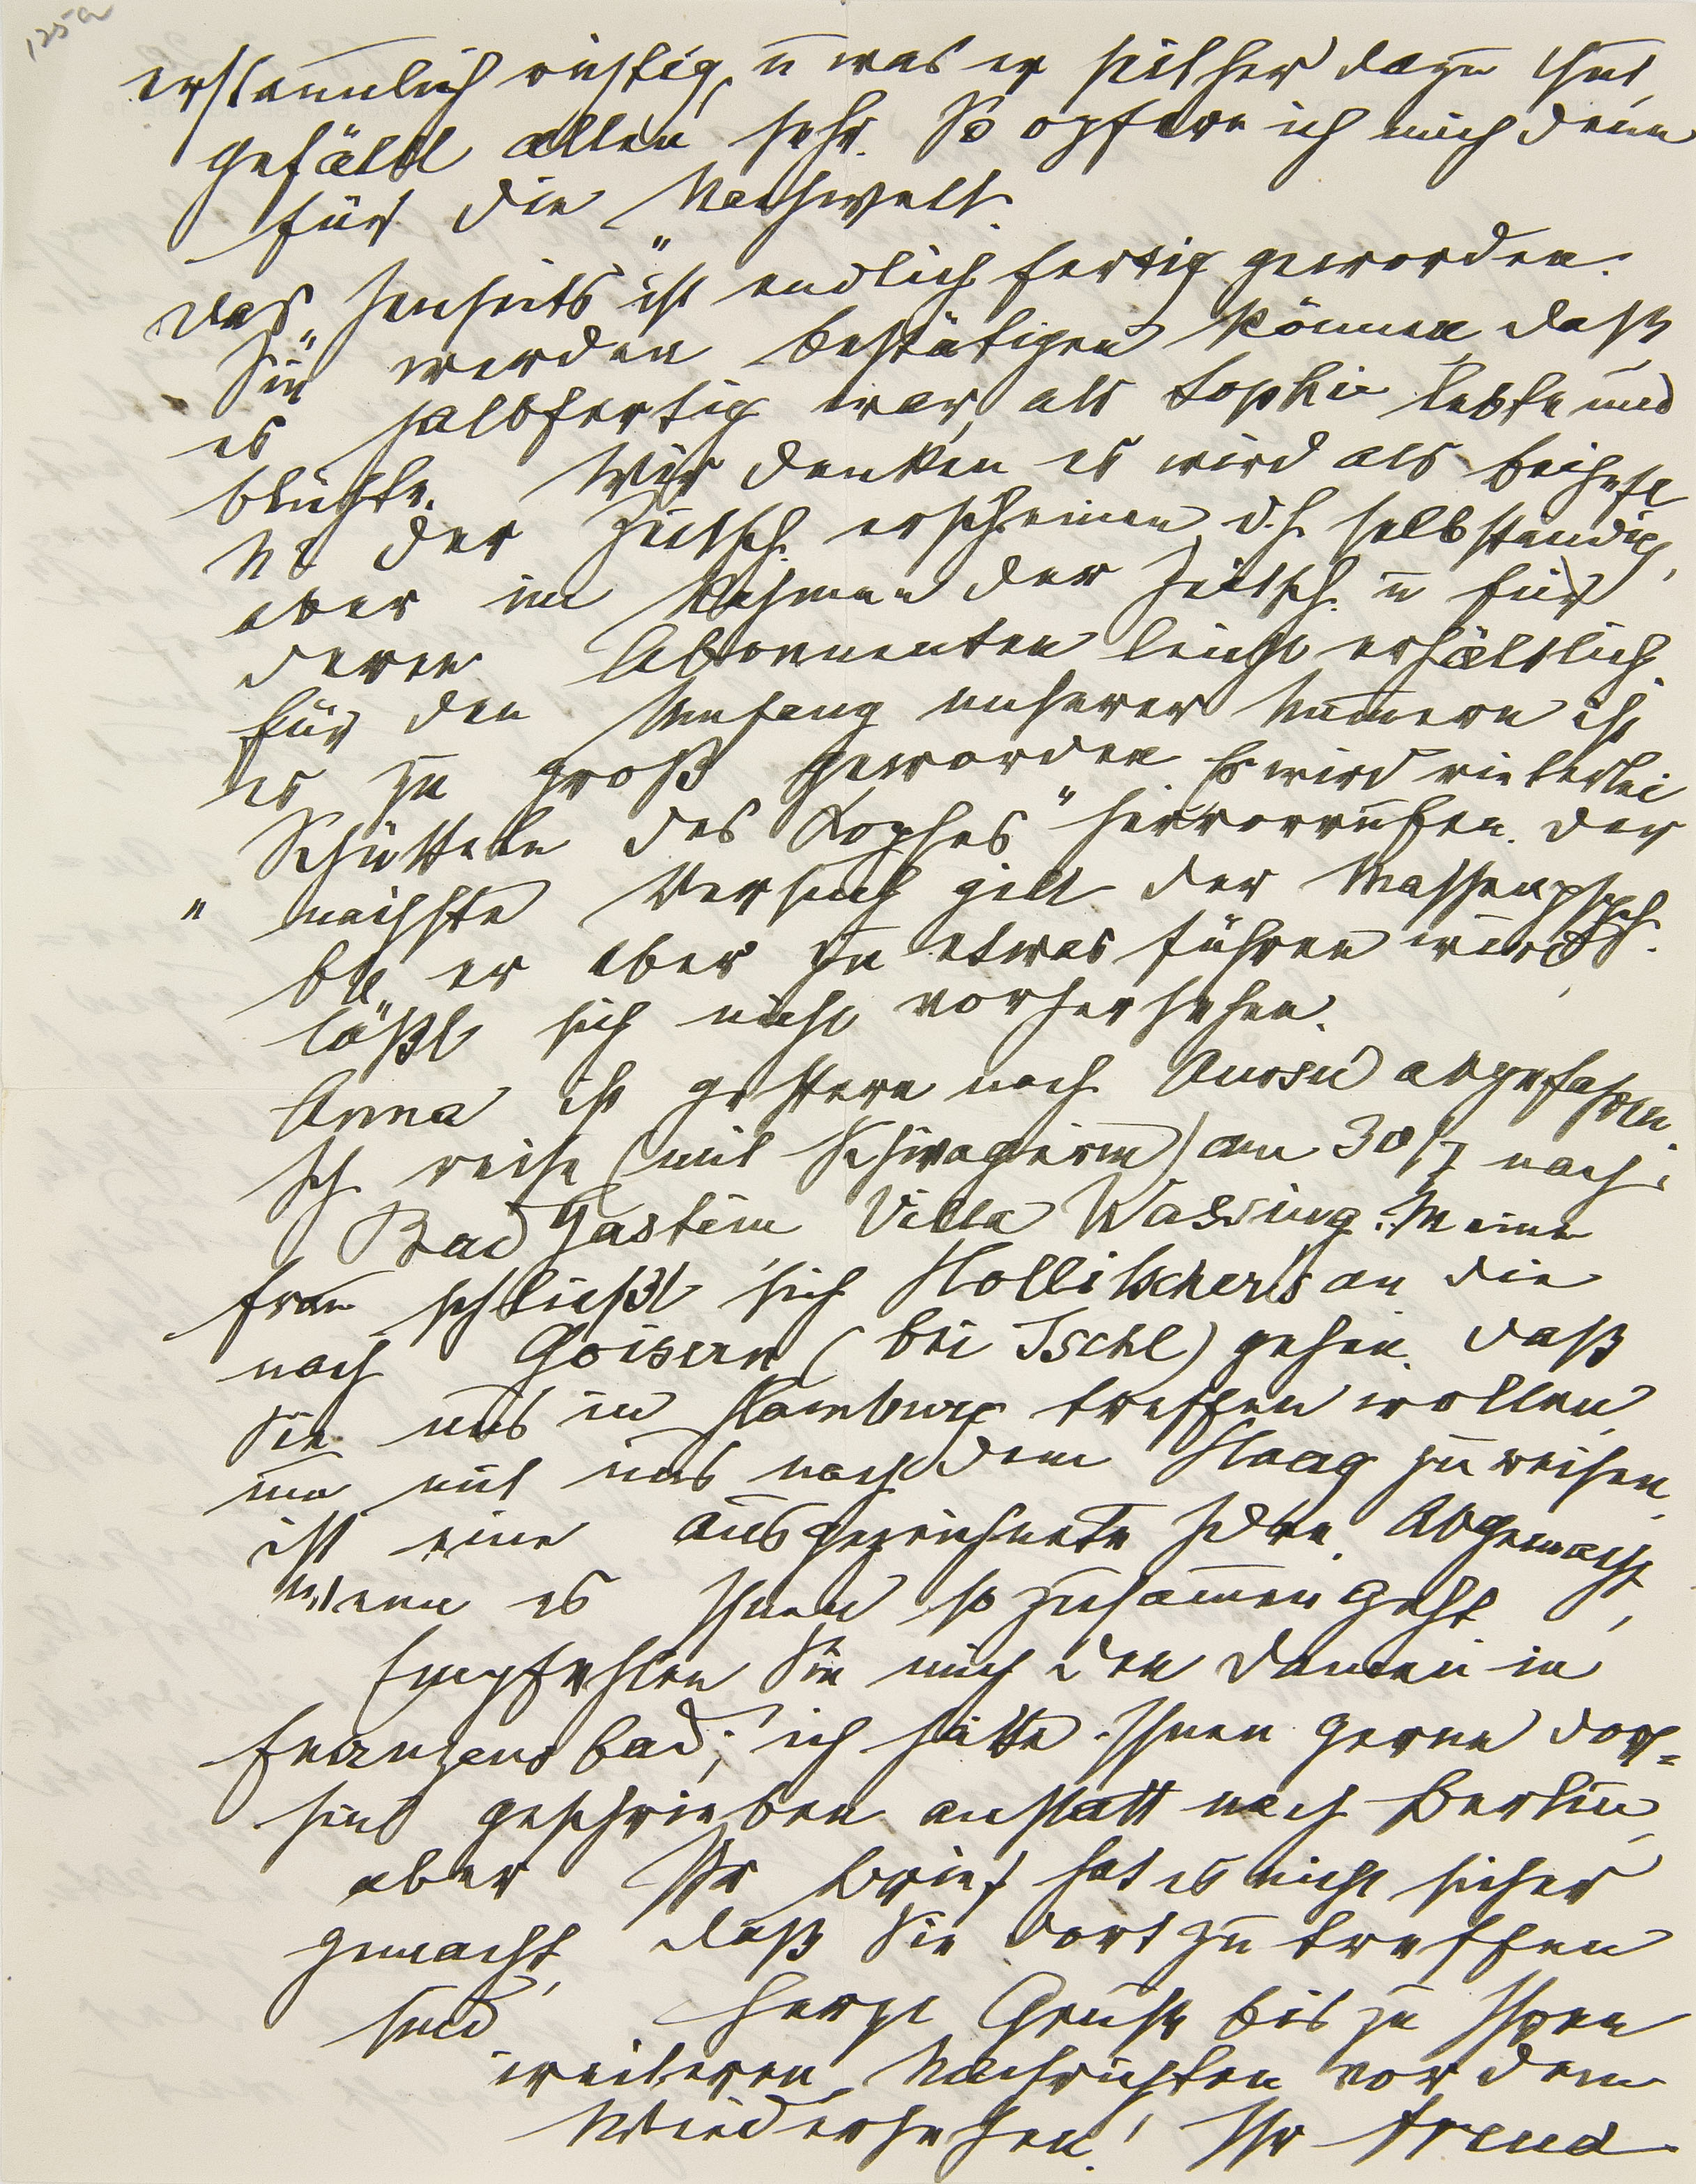 125a
erstaunlich rüstig, u was er seither dazu thut,
gefällt allen sehr. So opfere ich mich denn
für die Nachwelt.
Das „Jenseits" ist endlich fertig geworden.
Sie werden bestätigen können, daß
es halbfertig war, als Sophie lebte und
blühte. Wir denken es wird als Beiheft
N der Zeitsch. erscheinen, d. h. selbständig,
aber im Rahmen der Zeitsch. u für
deren Abonnenten leicht erhältlich.
Für den Umfang unserer Nummern ist
es zu groß geworden. Es wird vielerlei
„Schütteln des Kopfes" hervorrufen. Der
nächste Versuch gilt der Massenpsych.
Ob er aber zu etwas führen wird,
läßt sich nicht vorhersehen.
Anna ist gestern nach Aussee abgefahren.
Ich reise (mit Schwägerin) am 30/7 nach
Bad Gastein Villa Wassing. Meine
Frau schließt sich Hollitschers an die
nach Goisern (bei Ischl) gehen. Daß
Sie uns in Hamburg treffen wollen,
um mit uns nach dem Haag zu reisen,
ist eine ausgezeichnete Idee. Abgemacht,
wenn es Ihnen so zusammengeht,
Empfehlen Sie mich den Damen in
Franzensbad; ich hätte Ihnen gerne dort=
hin geschrieben anstatt nach Berlin,
aber Ihr Brief hat es nicht sicher
gemacht, daß Sie dort zu treffen
sind. Herzl Grüße bis zu Ihren
weiteren Nachrichten vor dem
Wiedersehen! Ihr Freud